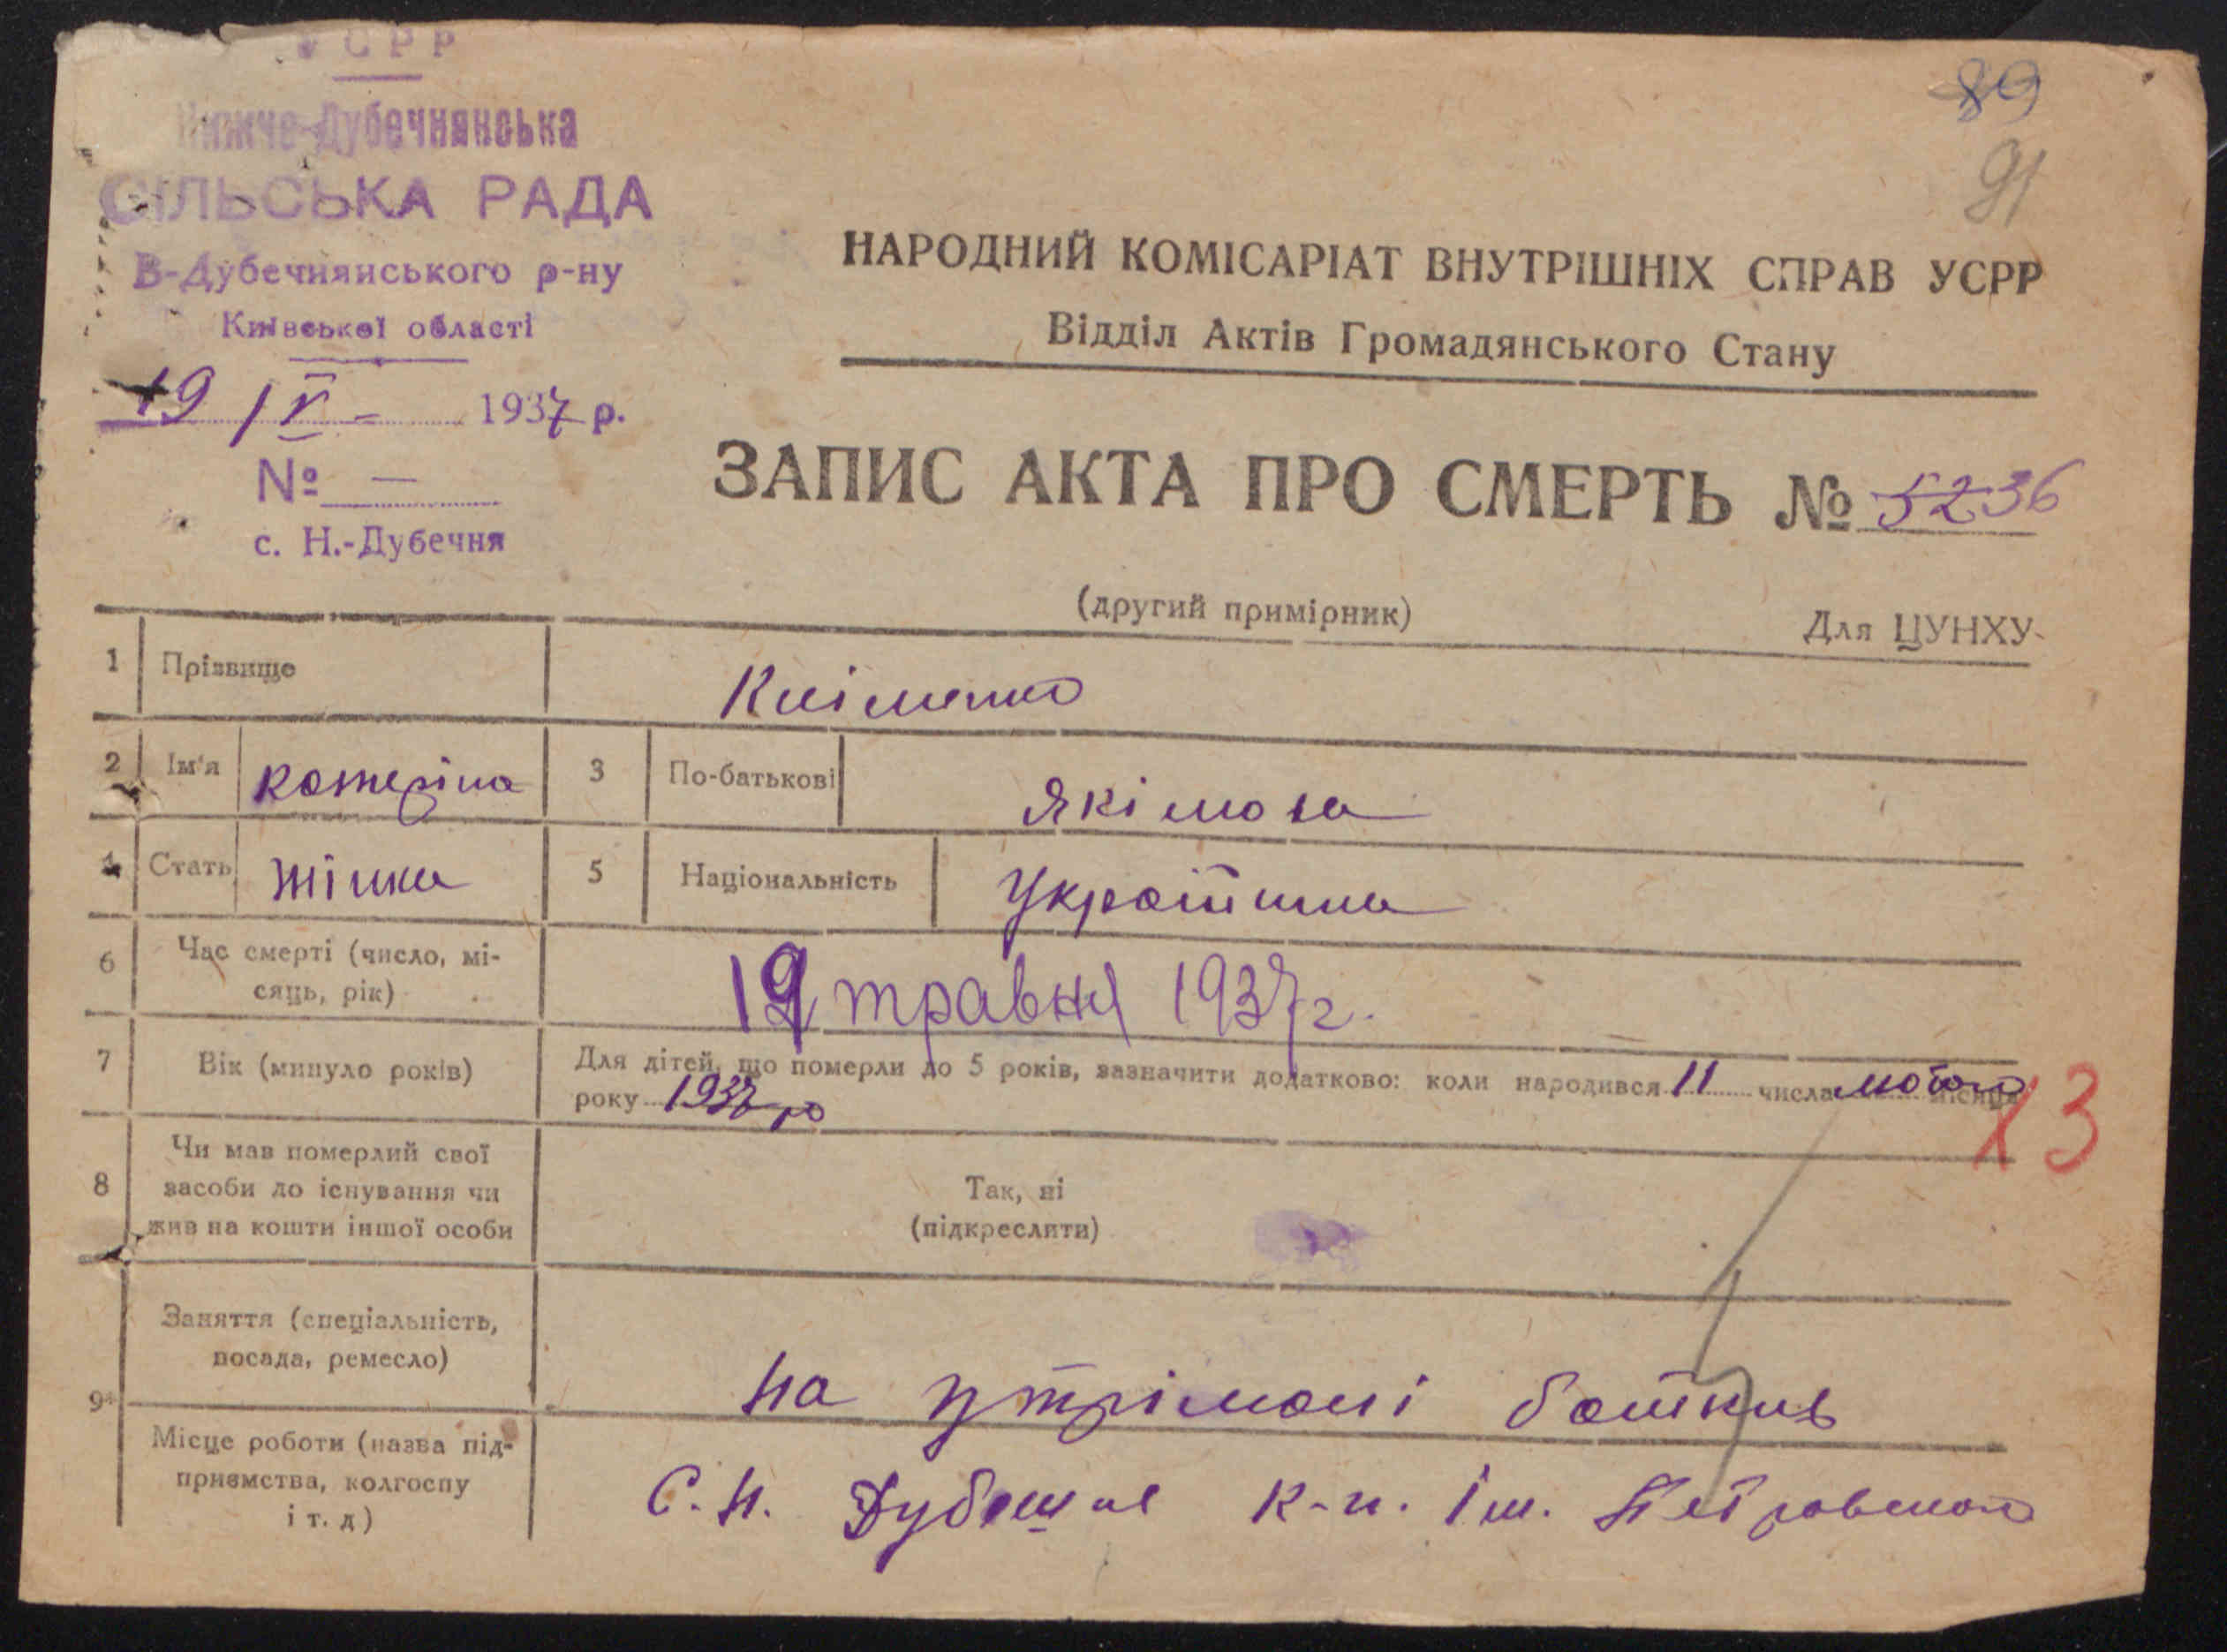 УСРР
89
Нижче-Дубечнянська
91
СІЛЬСЬКА РАДА
В-Дубечнянського р-ну
Київської області
НАРОДНИЙ КОМІСАРІАТ ВНУТРІШНІХ СПРАВ УСРР
Відділ Актів Громадянського Стану
19 / V - 1937 р.
№ —
с. Н.-Дубечня
ЗАПИС АКТА ПРО СМЕРТЬ № 5236
(другий примірник)
Для ЦУНХУ
1 Прізвище Кліменко
2 Ім'я Катеріна 3 По-батькові Якімова
4 Стать Жінка 5 Національність Українка
6 Час смерті (число, мі-
сяць, рік) 19 травня 1937 г.
7 Вік (минуло років) Для дітей, що померли до 5 років, зазначити додатково: коли народився 11 числа лютого місяця
року 1937 ю
13
8 Чи мав померлий свої
засоби до існування чи
жив на кошти іншої особи
Так, ні
(підкреслити)
9 Заняття (спеціальність,
посада, ремесло)
на утрімані батьків
Місце роботи (назва під-
приємства, колгоспу
і т. д)
С. Н. Дубечня к-п. Ім. Петровського